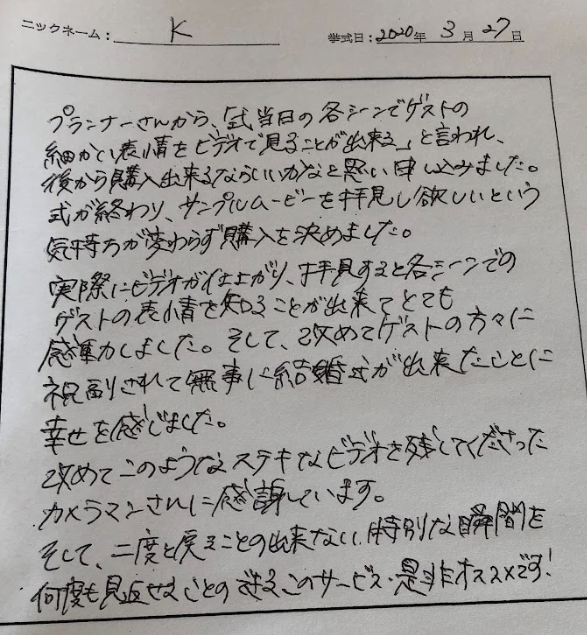 ニックネーム： K 挙式日：2020年 3月 27日
プランナーさんから、「式当日の各シーンでゲストの
細かい表情をビデオで見ることが出来る」と言われ、
後から購入出来るならいいかなと思い申し込みました。
式が終わり、サンプルムービーを拝見し欲しいという
気持ちが変わらず購入を決めました。
実際にビデオが仕上がり、拝見すると各シーンでの
ゲストの表情を知ることが出来てとても
感動しました。そして、改めてゲストの方々に
祝福されて無事に結婚式が出来たことに
幸せを感じました。
改めてこのようなステキなビデオを残してくださった
カメラマンさんに感謝しています。
そして、二度と戻ることの出来ない特別な瞬間を
何度も見返せることのできるこのサービス、是非オススメです!